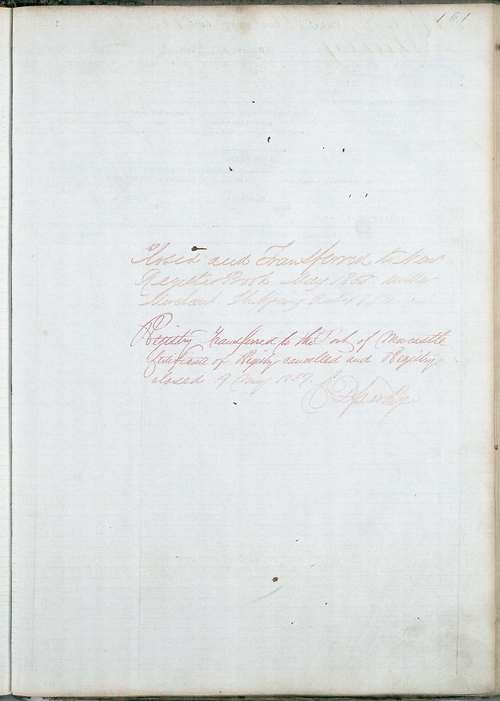 161
Closed and Transferred to New
Register Book May 1855 under
Merchant Shipping Act
Registry Transferred to the Port of Newcastle
Certificate of Registry cancelled and Registry
closed 9 May 1859